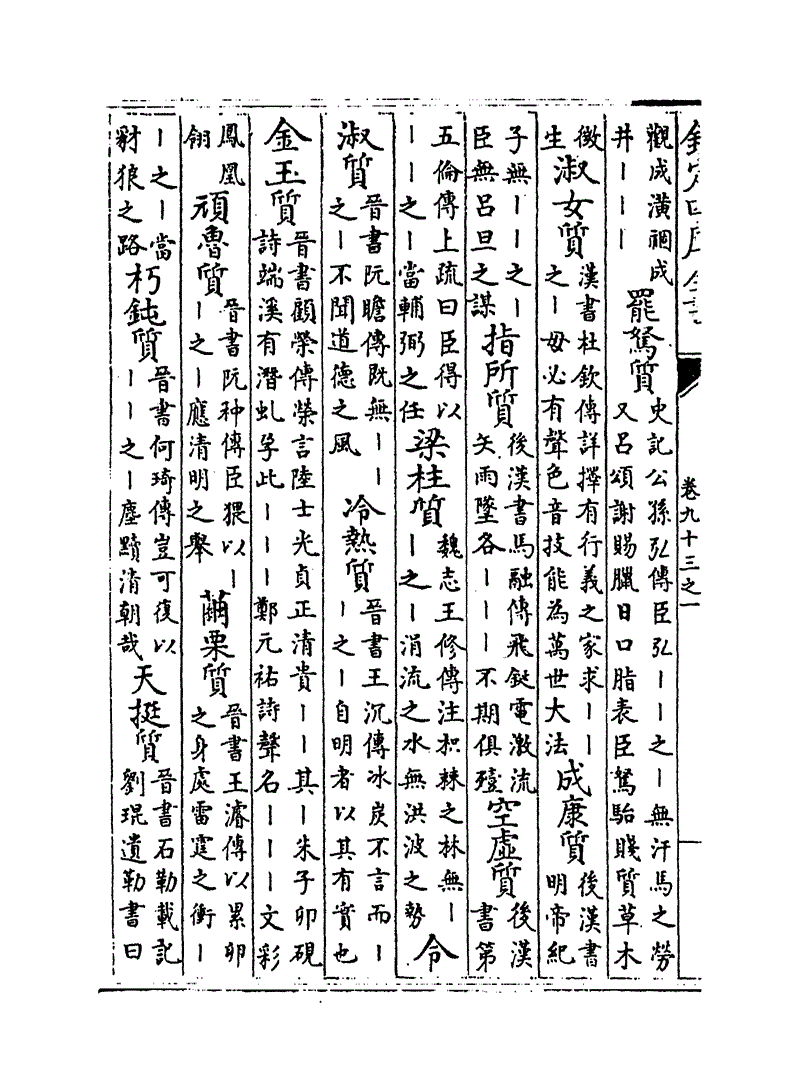 欽定四庫全書
卷九十三之一
觀成潢祠成
井｜｜｜
罷駑質
史記公孫弘傳臣弘｜｜之｜無汗馬之勞
又呂頌謝賜臘日口脂表臣駑駘賤質草木
徵
生
淑女質
漢書杜欽傳詳擇有行義之家求｜｜
之｜毋必有聲色音技能為萬世大法
成康質
後漢書
明帝紀
子無｜｜之｜
臣無呂旦之謀
指所質
後漢書馬融傳飛鋋電激流
矢雨墜各｜｜｜不期俱殪
空虛質
後漢
書第
五倫傳上疏曰臣得以
｜｜之｜當輔弼之任
梁柱質
魏志王修傳注枳棘之林無｜
｜之｜涓流之水無洪波之勢
令
淑質
晉書阮瞻傳既無｜｜
之｜不聞道德之風
冷熱質
晉書王沉傳冰炭不言而｜
｜之｜自明者以其有實也
金玉質
晉書顧榮傳榮言陸士光貞正清貴｜｜其｜朱子卯硯
詩端溪有潛虬孚此｜｜｜鄭元祐詩聲名｜｜｜文彩
鳳凰
翎
頑魯質
晉書阮种傳臣猥以｜
｜之｜應清明之舉
繭栗質
晉書王濬傳以累卵
之身處雷霆之衝｜
｜之｜當
豺狼之路
朽鈍質
晉書何琦傳豈可復以
｜｜之｜塵黷清朝哉
天挺質
晉書石勒載記
劉琨遺勒書曰